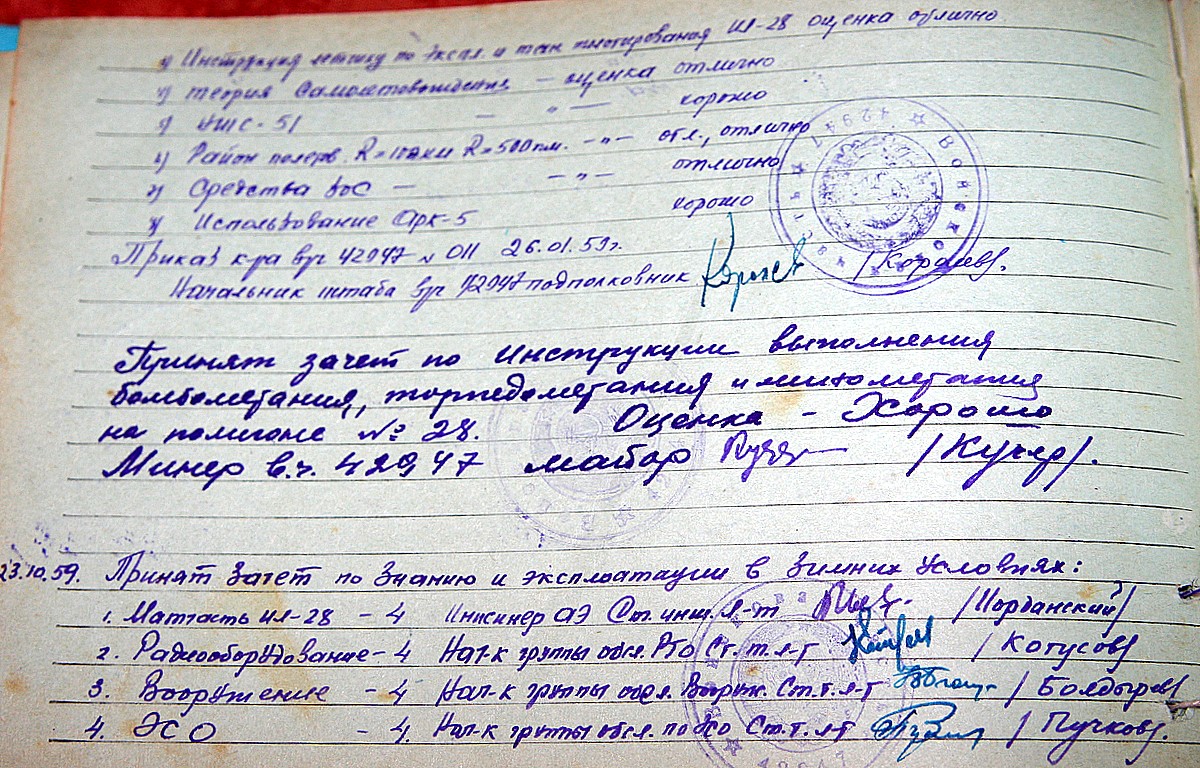 Инструкция летчику по экспл. и тех пилотирования Ил-28 оценка отлично
теория Самолетовождения — оценка отлично
НИС-51 — " — хорошо
Район полетов R=500км. — " — отл., отлично
Средства — " — отлично
Использование Арк-5 хорошо
Приказ к-ра в/ч 42947 № 011 26.01.59г.
Начальник штаба в/ч 42947 подполковник /Королев/.
Принят зачет по Инструкции выполнения
бомбометания, торпедометания и минометания
на полигоне № 28. Оценка - Хорошо
Минер в.ч. 42947 майор /Кучер/.
23.10.59. Принят Зачет по Знанию и эксплоатации в Зимних Условиях:
1. Матчасть Ил-28 - 4 Инженер АЭ Ст. инж. л-т
2. Радиооборудование - 4 Нач-к группы обсл. РТО Ст. т. л-т /Котусов/
3. Вооружение - 4 Нач-к группы обсл. Вооруж. Ст. т. л-т /Болдырев/
4. ЭСО - 4. Нач-к группы обсл. по Ст. т. л-т /Пучков/.
Войсковая часть 42947